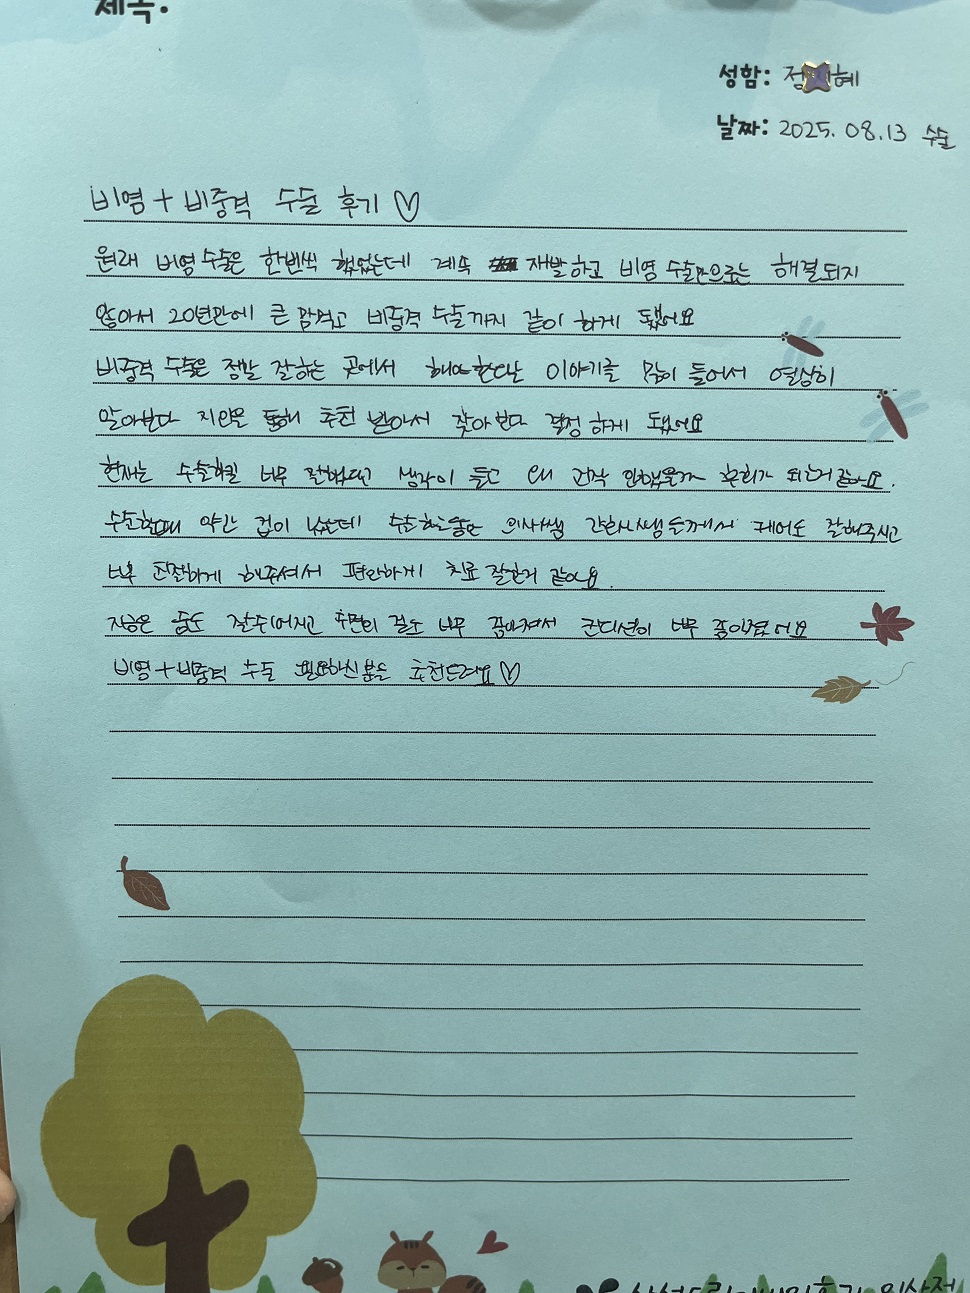 제목:
성함: 정 혜
날짜: 2025. 08.13 수술
비염+비중격 수술 후기♡
원래 비염 수술은 한번씩 했었는데 계속 재발하고 비염 수술만으로는 해결되지
않아서 20년만에 큰 맘먹고 비중격 수술까지 같이 하게 됐어요
비중격 수술은 정말 잘하는 곳에서 해야한다는 이야기를 많이 들어서 열심히
알아보다 지인을 통해 추천 받아서 찾아보다 결정 하게 됐어요
현재는 수술하길 너무 잘했다고 생각이 들고 왜 진작 안했을까 후회가 되는거 같아요.
수술할때 약간 겁이 났는데 수술하는동안 의사쌤 간호사쌤들께서 케어도 잘해주시고
너무 친절하게 해주셔서 편안하게 치료 잘한거 같아요.
지금은 숨도 잘쉬어지고 수면의 질도 너무 좋아져서 컨디션이 너무 좋아졌어요
비염+비중격 수술 필요하신분들 추천드려요♡